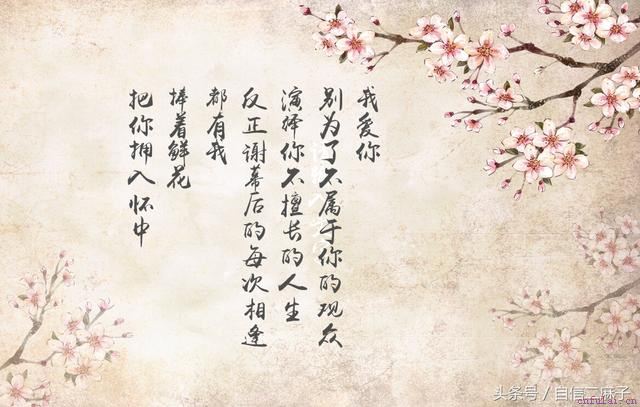 我爱你
别为了不属于你的观众
演绎你不擅长的人生
反正谢幕后的每次相逢
都有我
捧着鲜花
把你拥入怀中
头条号／自信二麻子
cnfulai.cn